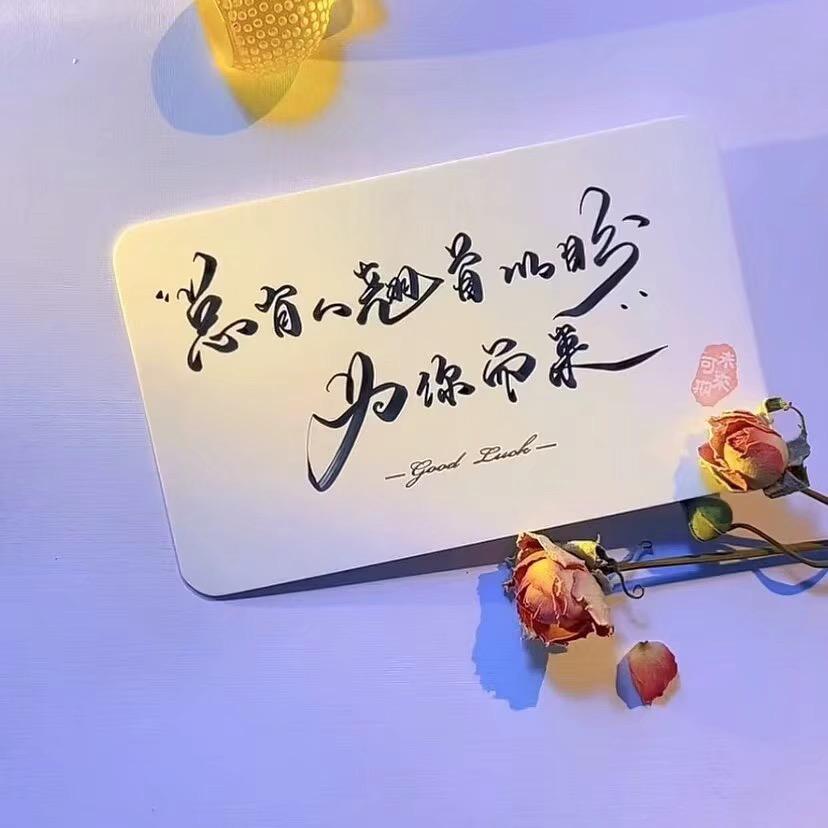 “总有人翘首以盼
为你而来”
—Good Luck—
未来
可期